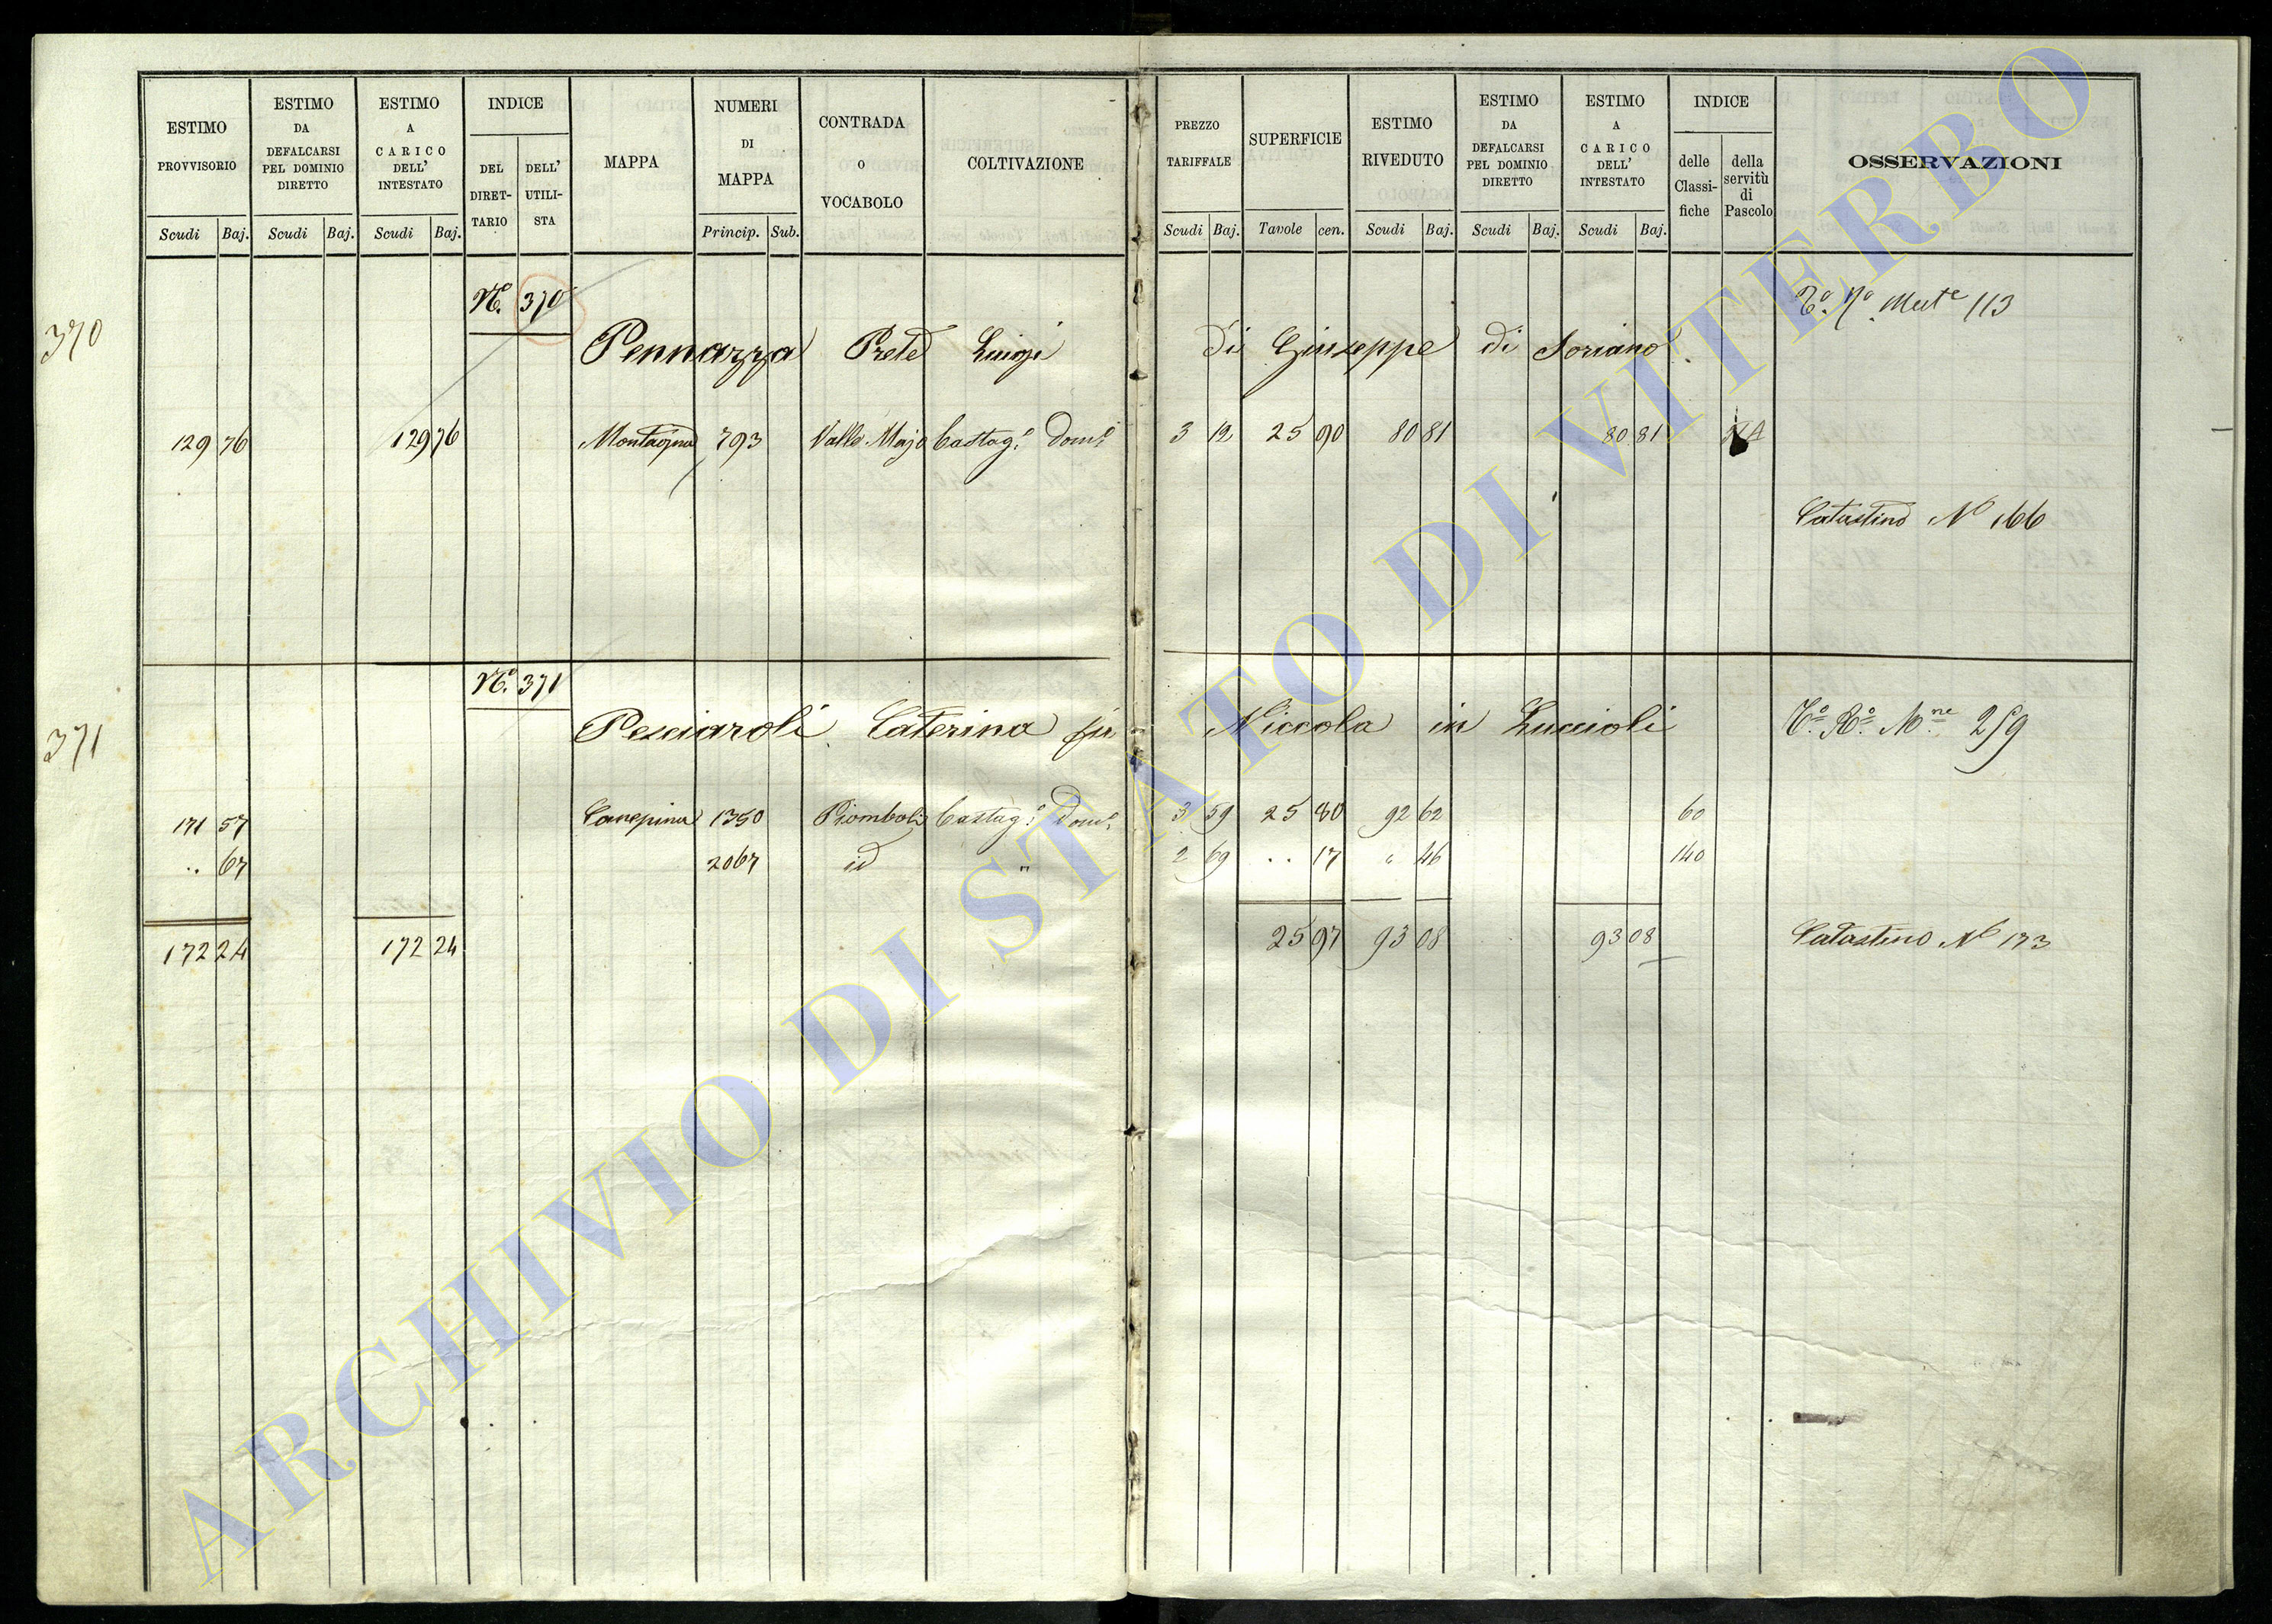 ESTIMO PROVVISORIO
ESTIMO DA DEFALCARSI PEL DOMINIO DIRETTO
ESTIMO A CARICO DELL' INTESTATO
INDICE
DEL DIRET-TARIO
DELL' UTILI-STA
MAPPA
NUMERI DI MAPPA
CONTRADA O VOCABOLO
COLTIVAZIONE
PREZZO TARIFFALE
SUPERFICIE
ESTIMO RIVEDUTO
ESTIMO DA DEFALCARSI PEL DOMINIO DIRETTO
ESTIMO A CARICO DELL' INTESTATO
INDICE
delle Classi-fiche
della servitù di Pascolo
OSSERVAZIONI
Scudi Baj. Scudi Baj. Scudi Baj. Princip. Sub. Scudi Baj. Tavole cen. Scudi Baj. Scudi Baj. Scudi Baj.
370
N.º 370
Pennazza Prete Luigi di Giuseppe di Soriano
113
129 76 129 76 Montagna 793 Valle Majo Castag.º Dom.º 3 12 25 90 80 81 80 81
Catastino Nº 166
371
N.º 371
Pesciaroli Caterina fu Niccola in Luccioli
259
171 57 Canepina 1350 Piomboli Castag.º Dom.º 3 59 25 80 92 62 60
.. 67 2067 id " 2 69 .. 17 " 46 140
172 24 172 24 25 97 93 08 93 08
Catastino Nº 173
ARCHIVIO DI STATO DI VITERBO